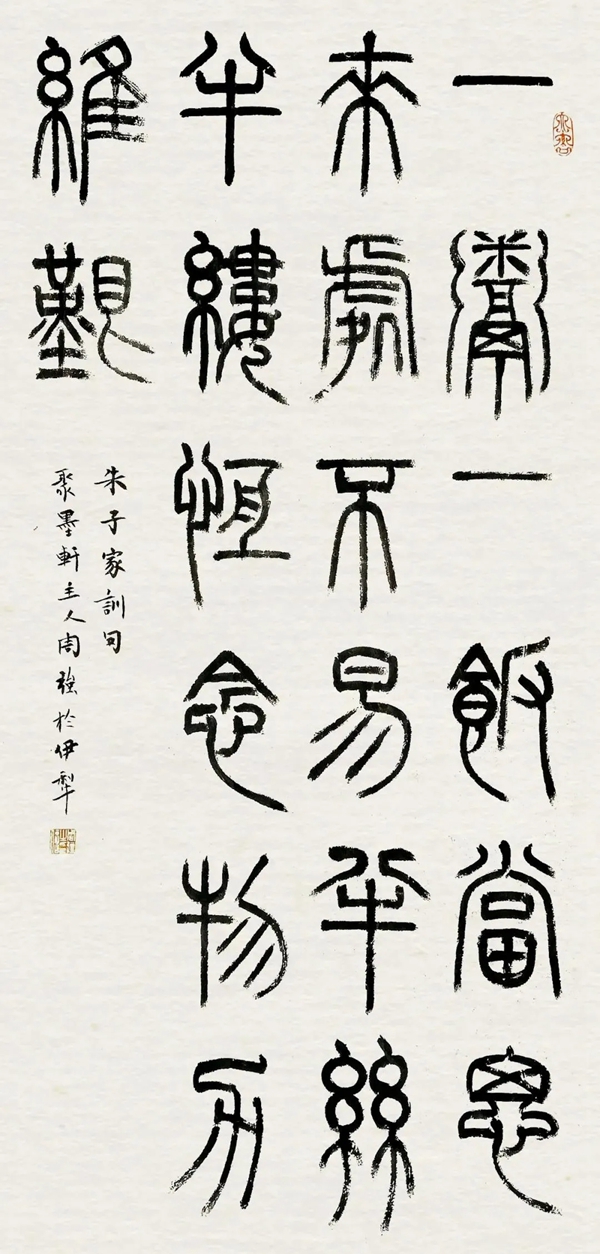 一鬻一飯當思
來處不易半絲
半縷恆念物力
維艱
朱子家訓句
聚墨軒主人周強於伊犁